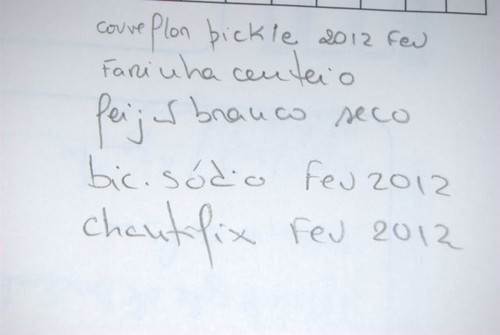 couveflor pickle 2012 Fev
Farinha centeio
branco seco
bic. sódio Fev 2012
chantifix Fev 2012